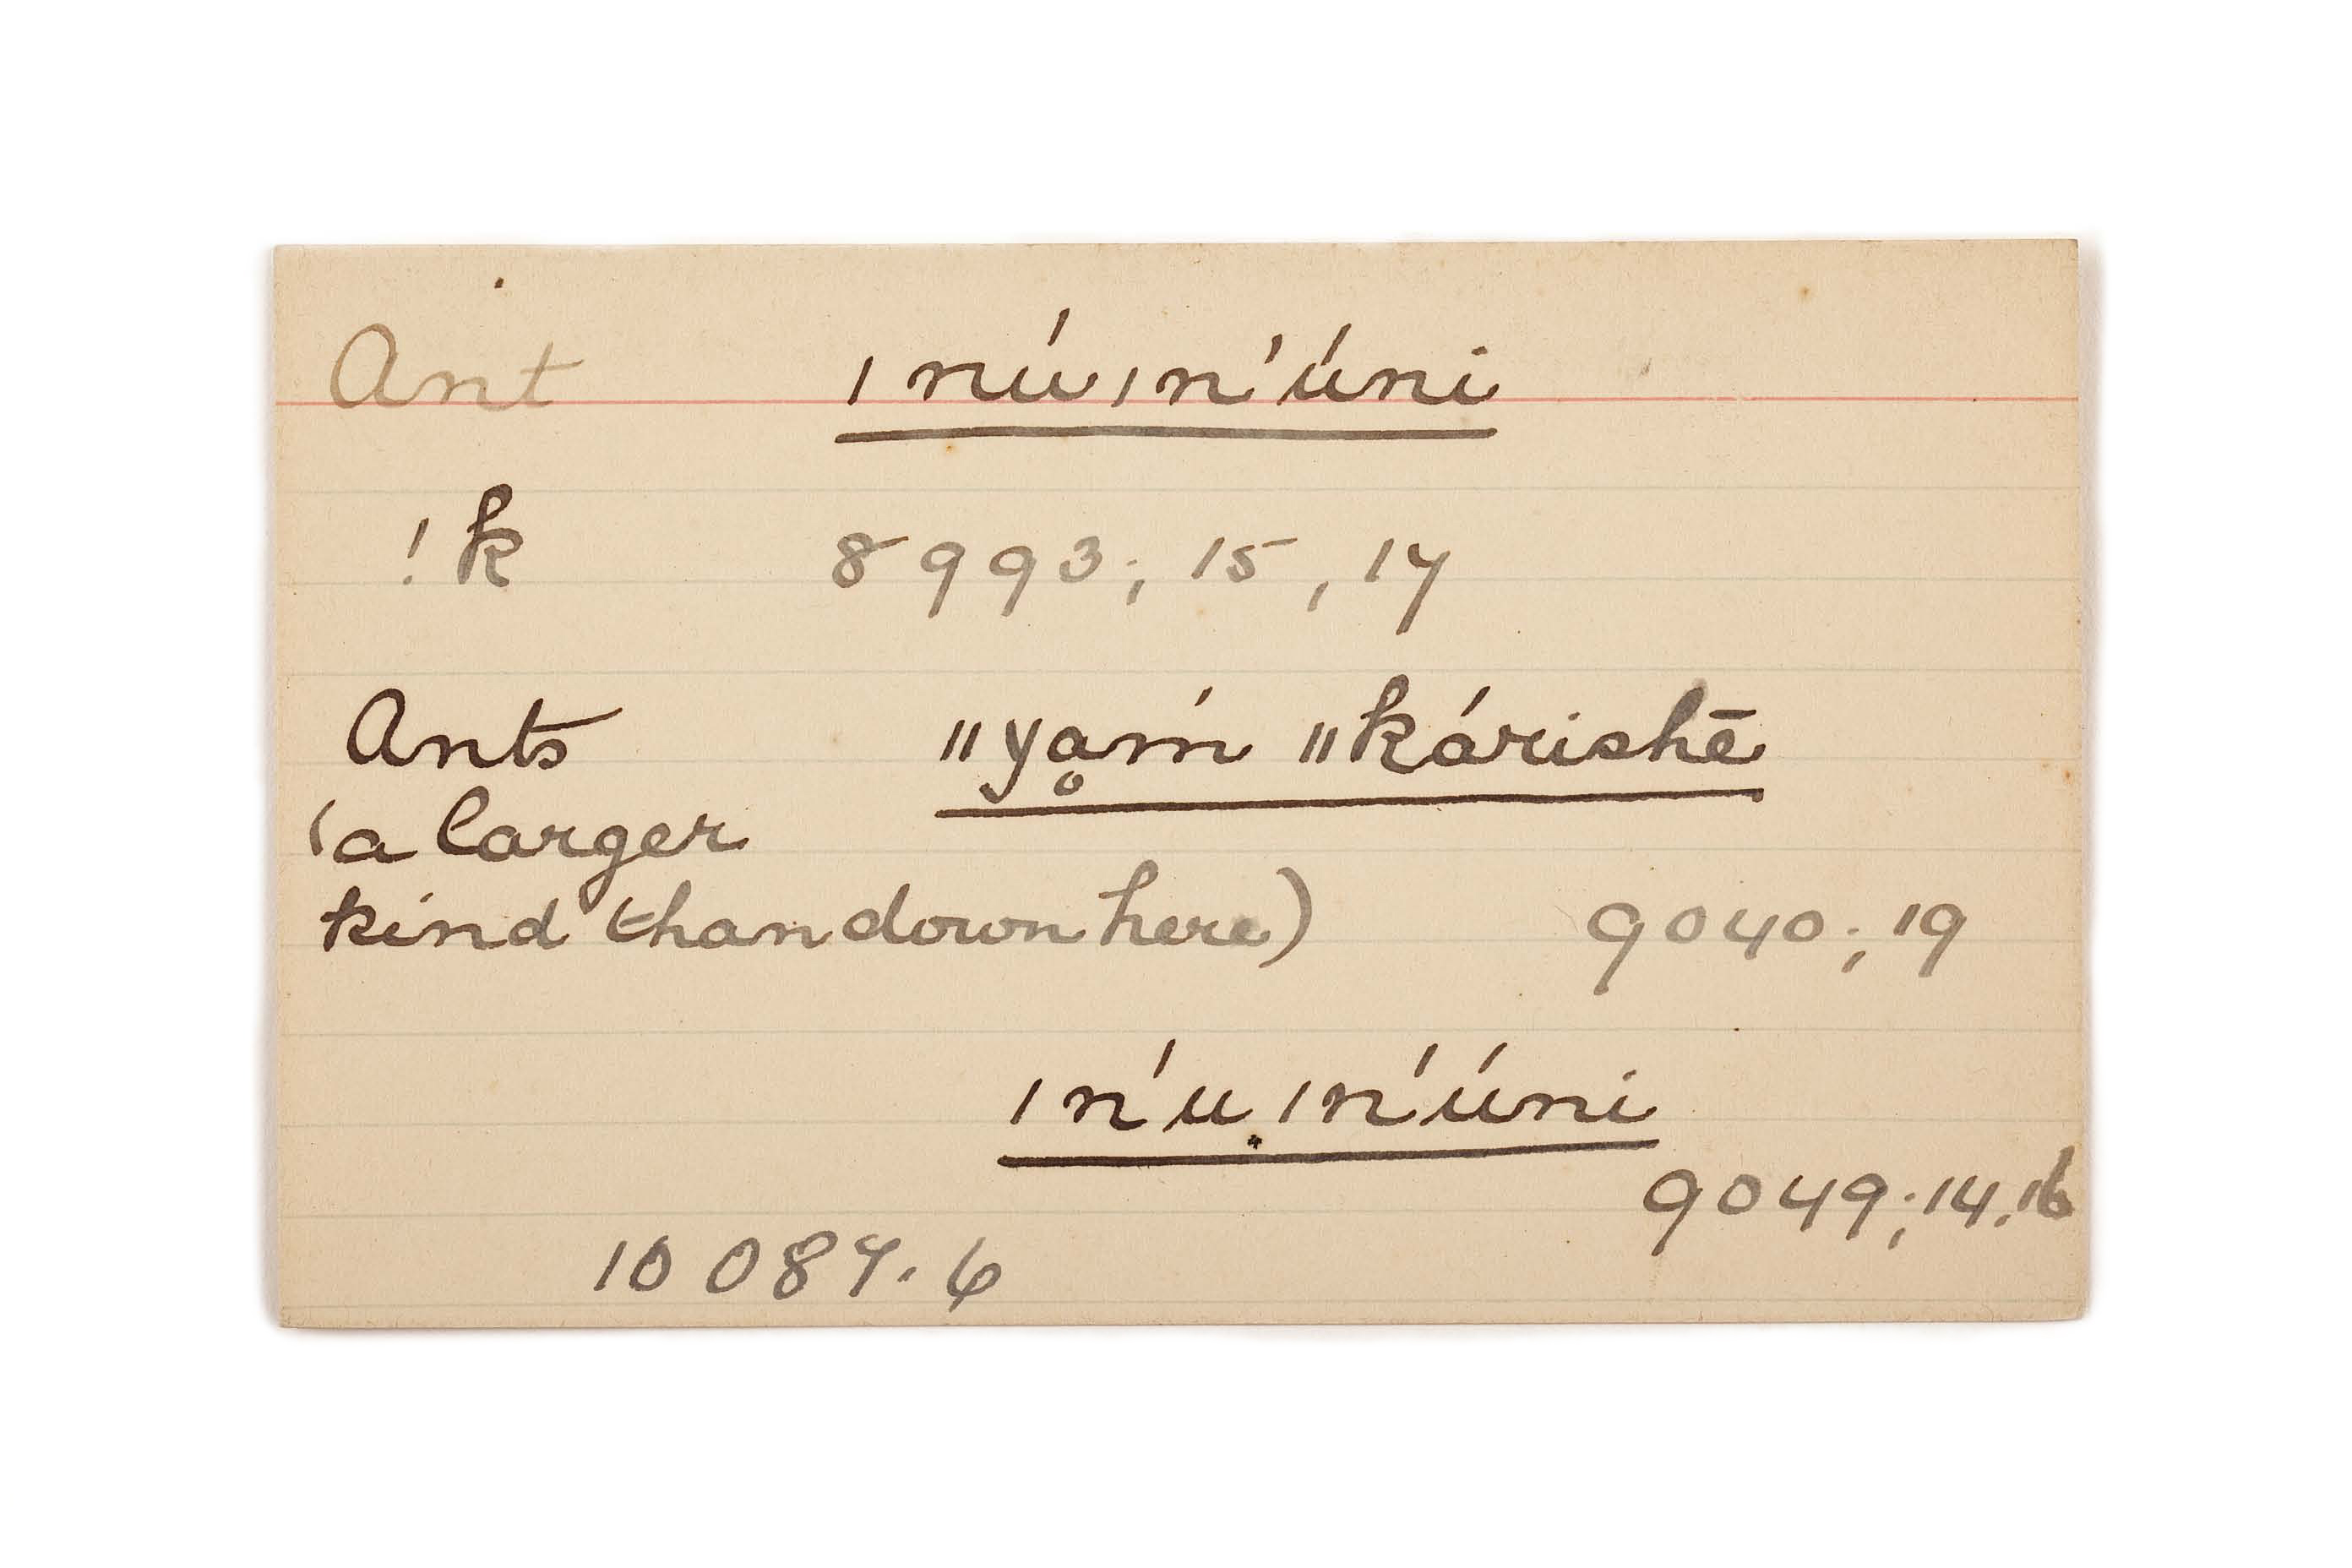 Ant ǀnúǀn'úni
!k 8993; 15, 17
Ants ǁyḁḿ ǁkárishē
(a larger
kind than down here) 9040; 19
ǀn'uǀn'úni
9049; 14. 16
10 087. 6